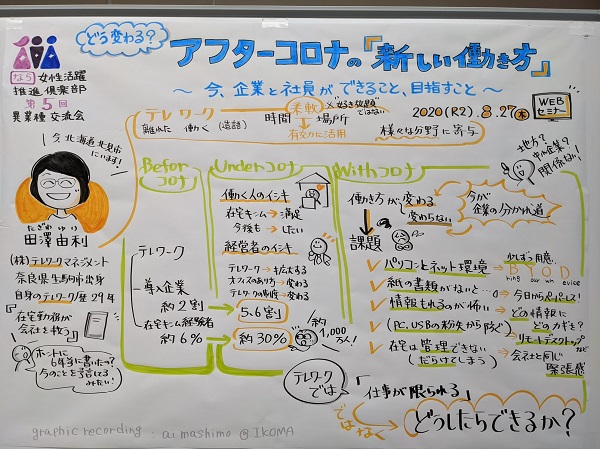 どう変わる?
アフターコロナの『新しい働き方』
~今、企業と社員が、できること、目指すこと~
なら女性活躍
推進倶楽部
第5回
異業種交流会
2020(R2).8.27(木)
WEB
セミナー
テレワーク
離れた 働く(造語)
柔軟
※好き放題
ではない
時間 場所
有効に活用
様々な分野に寄与
今、北海道北見市
にいます!
たざわ ゆり
田澤由利
(株)テレワークマネジメント
奈良県生駒市出身
自身のテレワーク歴29年
『在宅勤務が
会社を救う』
ホントに
6年前に書いたの?
今のことを言ってる
みたい!
Befor
コロナ
テレワーク
導入企業
約2割
在宅キンム経験者
約6%
Underコロナ
働く人のイシキ
在宅キンム→満足
今後も→したい
経営者のイシキ
テレワーク→拡大する
オフィスのあり方→変わる
テレワークの制度→変わる
5~6割
約30%
約
1,000
万人!
Withコロナ
働き方が
変わる
変わらない
今が
企業の分かれ道
地方?
中小企業?
関係ない!
課題
パソコンとネット環境→必ずしも用意
BYOD
ring our wn evice
紙の書類がないと…→今日からPLPレス!
情報もれるのが怖い→どの情報に
どのカギを?
(PC、USBの紛失から防ぐ)→リモートデスクトップ
など
在宅は管理できない→会社と同じ
(だらけてしまう) 緊張感
テレワーク
では
「仕事が限られる」
ではなく
どうしたらできるか?
graphic recording : ai mashimo @IKOMA